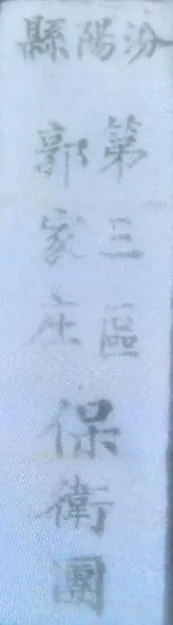 汾陽縣
第三區
郭家庄
保衛團